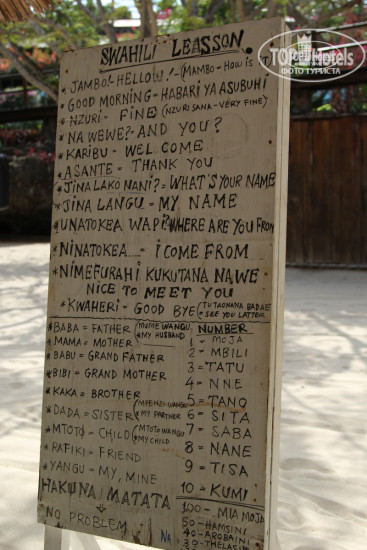 SWAHILI LEASSON.
TOPHotels
ФОТО ТУРИСТА
* JAMBO! - HELLOW! - (MAMBO = How is
GOOD MORNING - HABARI YA ASUBUHI
* NZURI - FINE (NZURI SANA - VERY FINE)
* NA WEWE? - AND YOU?
* KARIBU - WEL COME
* ASANTE - THANK YOU
* JINA LAKO NANI? = WHAT'S YOUR NAME
* JINA LANGU - MY NAME
UNATOKEA WAPI? WHERE ARE YOU FROM
* NINATOKEA... - I COME FROM
* NIMEFURAHI KUKUTANA NA WE
NICE TO MEET YOU
* KWAHERI - GOOD BYE (TUTAONANA BADAE
* SEE YOU LATTER
* BABA = FATHER (MUME WANGU
* MY HUSBAND
* MAMA = MOTHER
* BABU = GRAND FATHER
* BIBI = GRAND MOTHER
* KAKA = BROTHER
* DADA = SISTER (MPENZI WANGU
* MY PARTNER
* MTOTO - CHILD (MTOTO WANGU
* MY CHILD
* RAFIKI = FRIEND
* YANGU = MY, MINE
HAKUNA MATATA
NO PROBLEM
NUMBER
1 = MOJA
2 - MBILI
3 = TATU
4 = NNE
5 = TANO
6 = SITA
7 = SABA
8 = NANE
9 = TISA
10 = KUMI
100 = MIA MOJA
50 - HAMSINI
40 - AROBAINI
NA